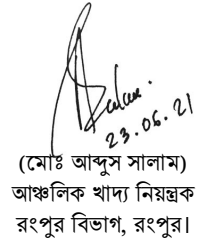 23.06.21
(মোঃ আব্দুস সালাম)
আঞ্চলিক খাদ্য নিয়ন্ত্রক
রংপুর বিভাগ, রংপুর।